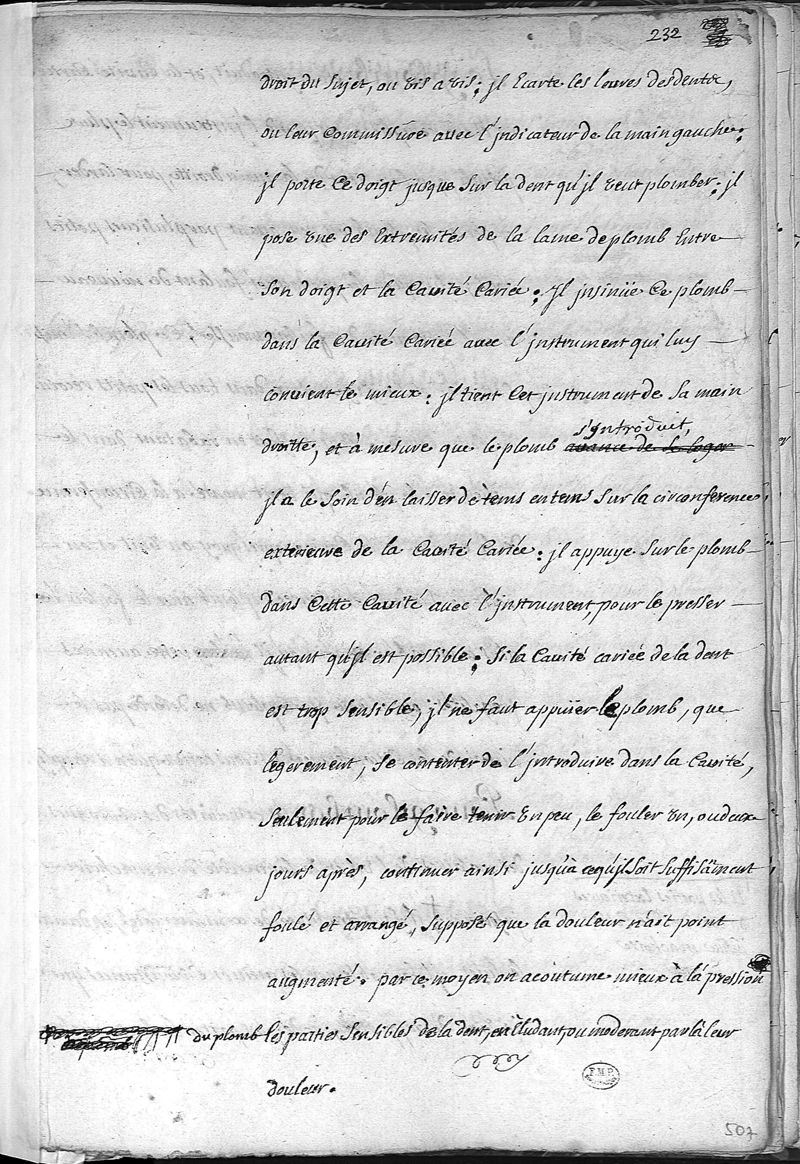 232
droit du sujet, ou vis a vis; jl Ecarte les levres des dents,
ou leur Commissure avec l'jndicateur de la main gauche:
jl porte Ce doigt jusque sur la dent qu'jl veut plomber: jl
pose une des Extremités de la lame de plomb Entre
son doigt et la Cavité Cariée: jl jnsinüe Ce plomb
dans la Cavité Cariée avec l'jnstrument qui luy
convient le mieux: jl tient Cet jnstrument de sa main
droitte, et à mesure que le plomb avance de se loger
s'jntroduit,
jl a le soin d'en laisser de tems en tems sur la circonference
exterieure de la Cavité Cariée: jl appuye sur le plomb
dans Cette Cavité avec l'jnstrument, pour le presser
autant qu'jl est possible: Si la Cavité cariée de la dent
est trop sensible, jl ne faut appuïer le plomb, que
legerement, se contenter de l'jntroduire dans la Cavité,
seulement pour le faire tenir un peu, le fouler un, ou deux
jours aprés, continuer ainsi jusqu'à ce qu'jl soit suffisament
foulé et arrangé, supposé que la douleur n'ait point
augmenté. par ce moyen on acoutume mieux à la pression
du plomb les parties sensibles de la dent, en Eludant, ou moderant par là leur
douleur.
F.M.P.
507